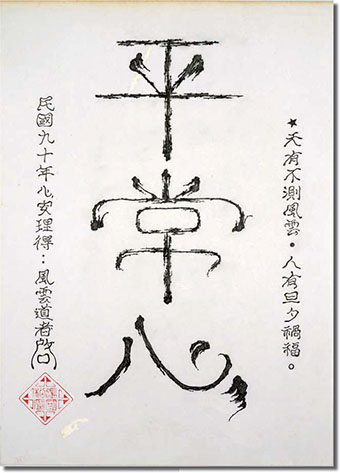 ★天有不測風雲·人有旦夕禍福。
平常心
民國九十年心安理得:風雲道者啟